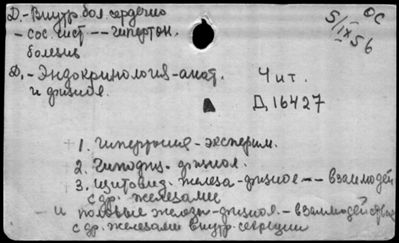 Д.-Внутр бол. сердечно
ОС
- сос. сист -- гипертон.
5/IX 56
болезнь
Д.- Эндокринология-анат.
и физиол.
Чит.
Д 16427
1. Гипертония - эксперим.
2. Гипофиз - физиол.
3. Щитовид. железа - физиол -- взаимодей
с др. железами
и половые железы - физиол. - взаимодейств
с др. железами внутр. секреции